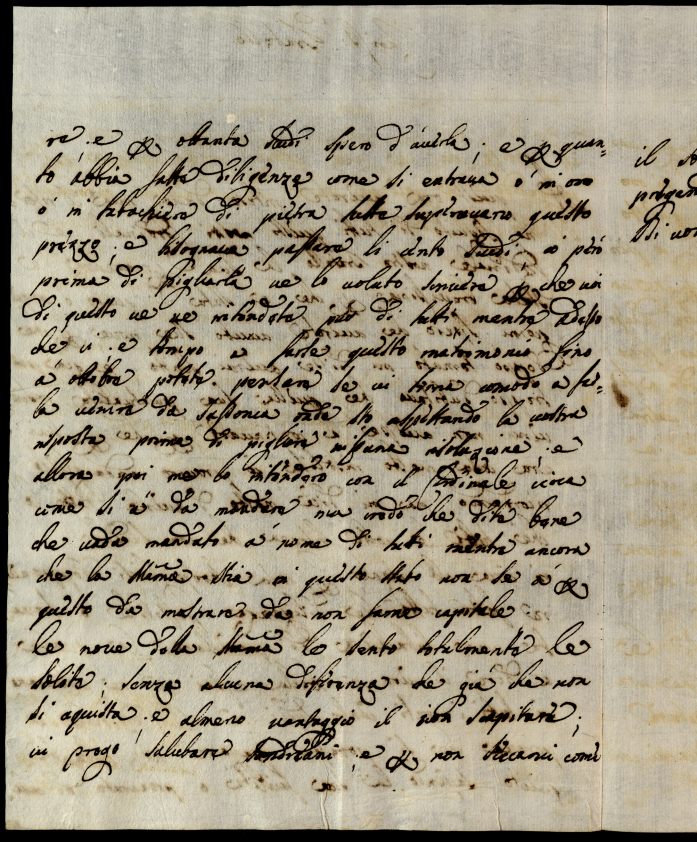 re e ottanta scudi spero d'averla; e quan=
to abbia fatte diligenza come si entrava o in oro
o in tabachiere di pietra tutte superavano questo
prezzo; e bisognava passare li cento scudi io però
prima di pigliarla ve lo volato scrivere che voi
di questo ve ne intendete più di tutti mentre adesso
che vi e tempo a farle questo matrimonio fino
a ottobre potete pensare se vi torna comodo a far=
la venire da Sassonia onde sto aspettando la vostra
risposta prima di pigliare nissuna risoluzione; e
allora poi me lo intendero con il Cardinale circa
come si a da mandare ma credo che dite bene
che vada mandato a nome di tutti mentre ancora
che la Mama stia in questo stato non se a
questo da mostrare da non farne capitale
le nove della Mama le sento totalmente le
solite; senza alcuna diferenza che gia che non
si aquista e almeno vantaggio il non scapitare;
vi prego salutare Sandreani; e non seccarvi come
il
pregan
Di vo